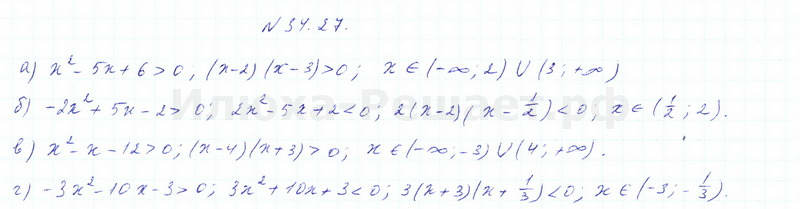 N 34.27.
а) x² - 5x + 6 > 0; (x-2)(x-3) > 0; x ∈ (-∞; 2) ∪ (3; +∞)
б) -2x² + 5x - 2 > 0; 2x² - 5x + 2 < 0; 2(x-2)(x - 1/2) < 0; x ∈ (1/2; 2).
в) x² - x - 12 > 0; (x-4)(x+3) > 0; x ∈ (-∞; -3) ∪ (4; +∞).
г) -3x² - 10x - 3 > 0; 3x² + 10x + 3 < 0; 3(x+3)(x + 1/3) < 0; x ∈ (-3; -1/3).
Илюха-Решает.рф